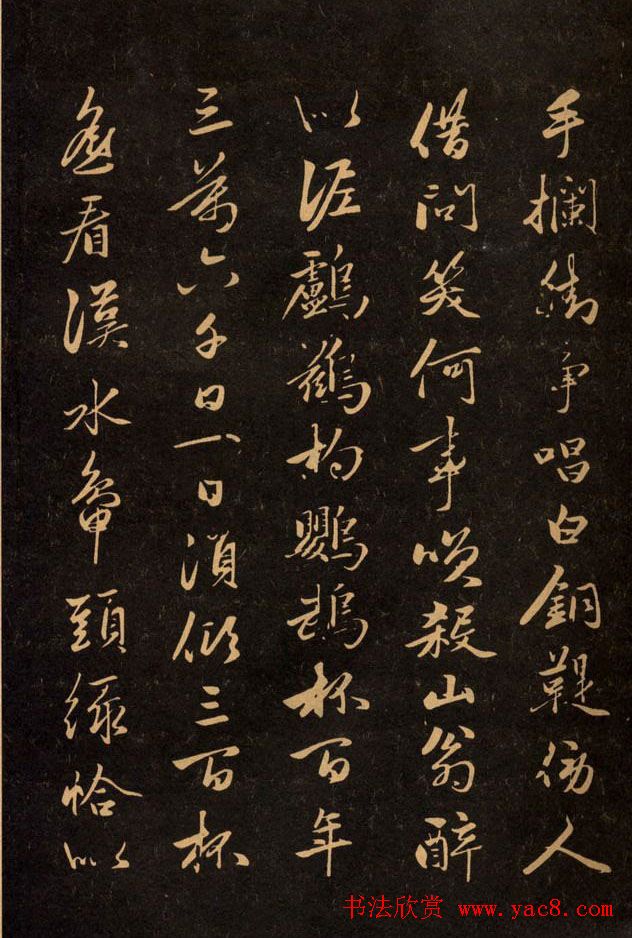 手攔街争唱白銅鞮傍人
借問笑何事咲殺山翁醉
似泥鸕鶿杓鸚鵡杯百年
三萬六千日一日須傾三百杯
遥看漢水鴨頭緑恰似
书法欣赏 www.yac8.com